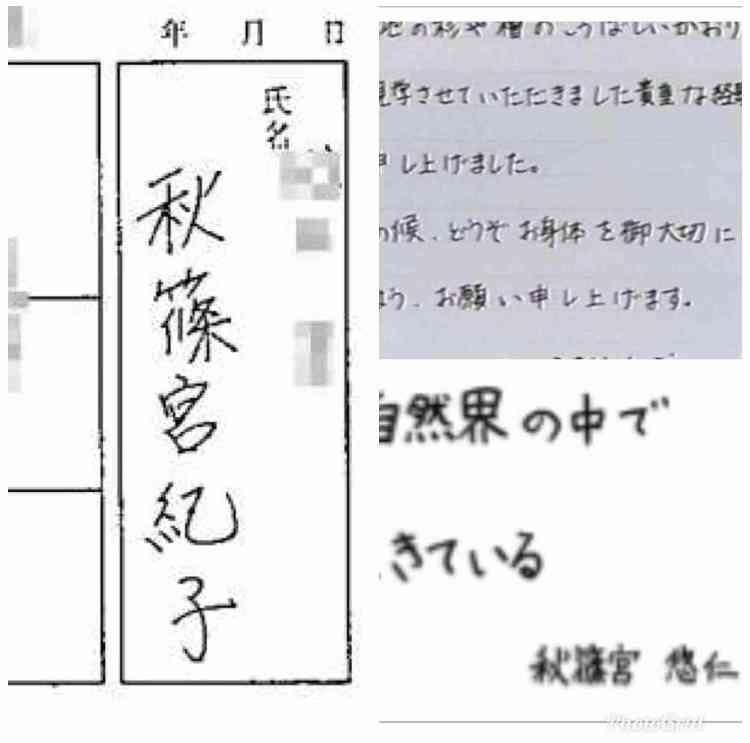 年 月 日
氏名
秋篠宮紀子
の杉や檜のこうばしいかおり
学させていただきました貴重な経験
し上げました。
の候、どうぞお身体を御大切に
よう、お願い申し上げます。
自然界の中で
きている
秋篠宮 悠仁
PhotoGrid